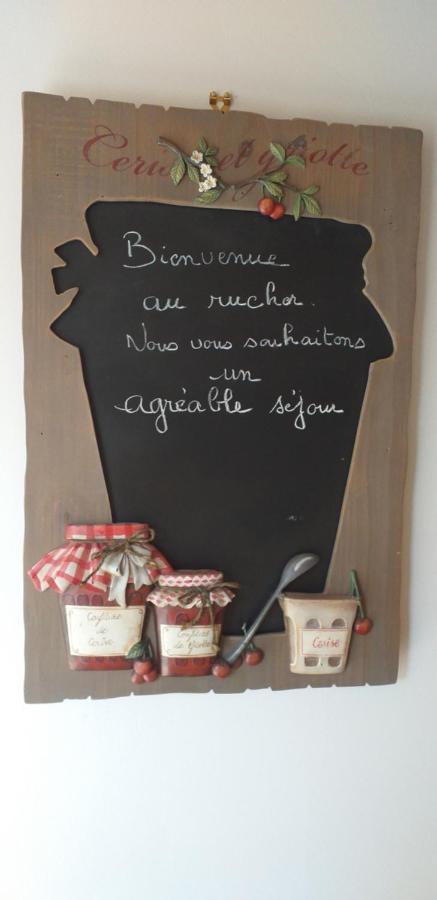 Cerise et griotte
Bienvenue
au rucher.
Nous vous souhaitons
un
agréable séjour
Confiture
de
Cerise
Confiture
de Griotte
Cerise